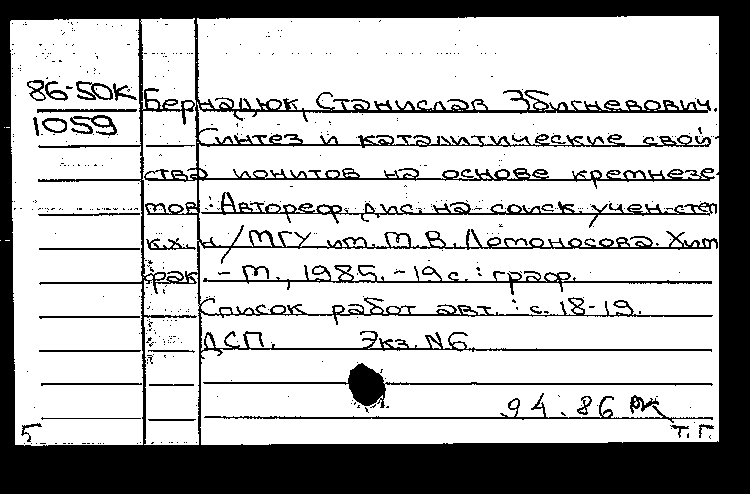 86-50К Бернадюк, Станислав Збигневович.
1059
Синтез и каталитические свой-
ства ионитов на основе кремнезе-
мов : Автореф. дис. на соиск. учен. степ
к.х.н / МГУ им. М.В. Ломоносова. Хим
фак. - М., 1985. - 19 с. : граф.
Список работ авт. : с. 18-19.
ДСП. Экз. N6.
94.86
5 Т. Г.